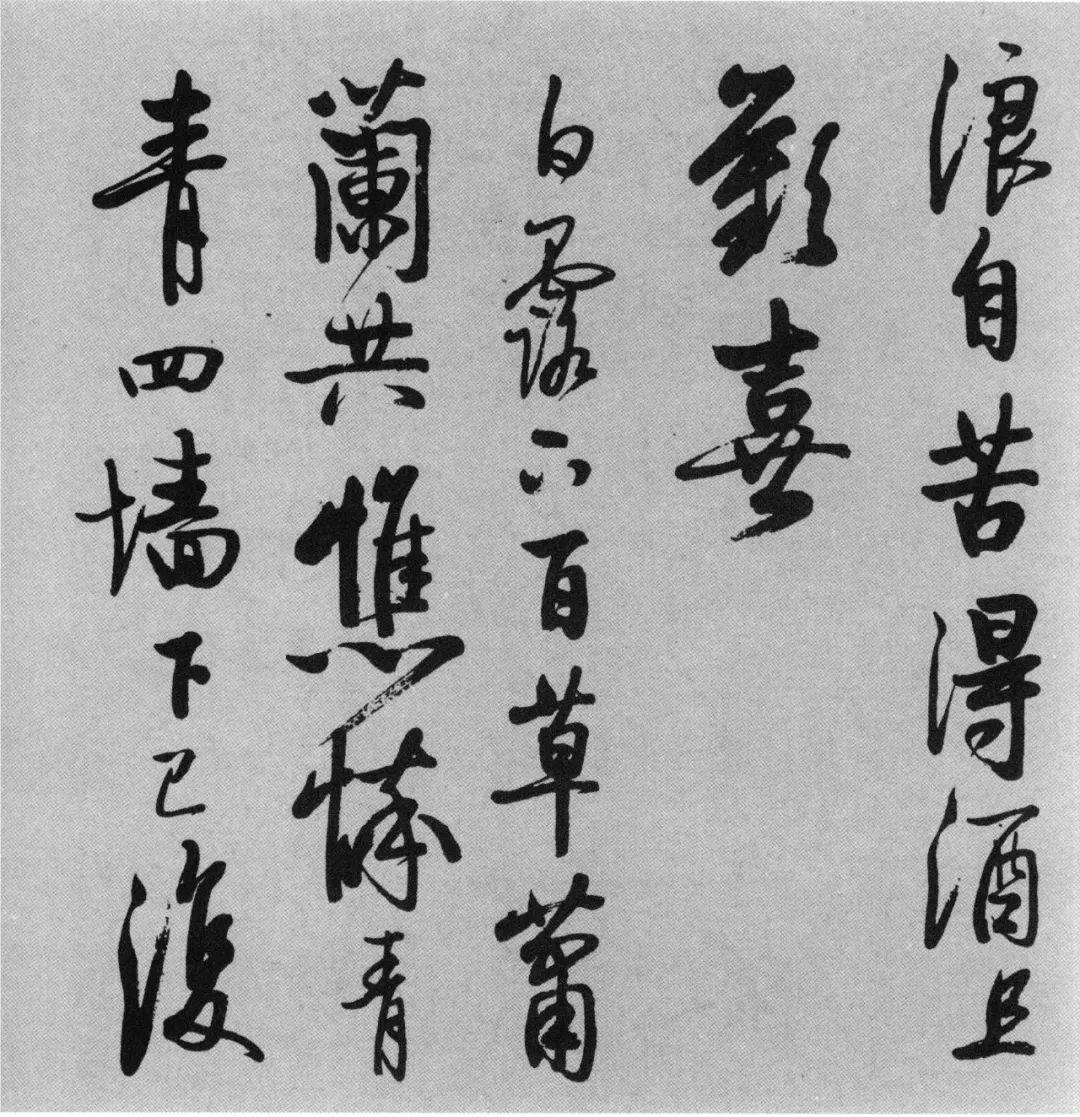 浪自苦得酒且
歡喜
白露下百草蕭
蘭共憔悴青
青四墻下已復